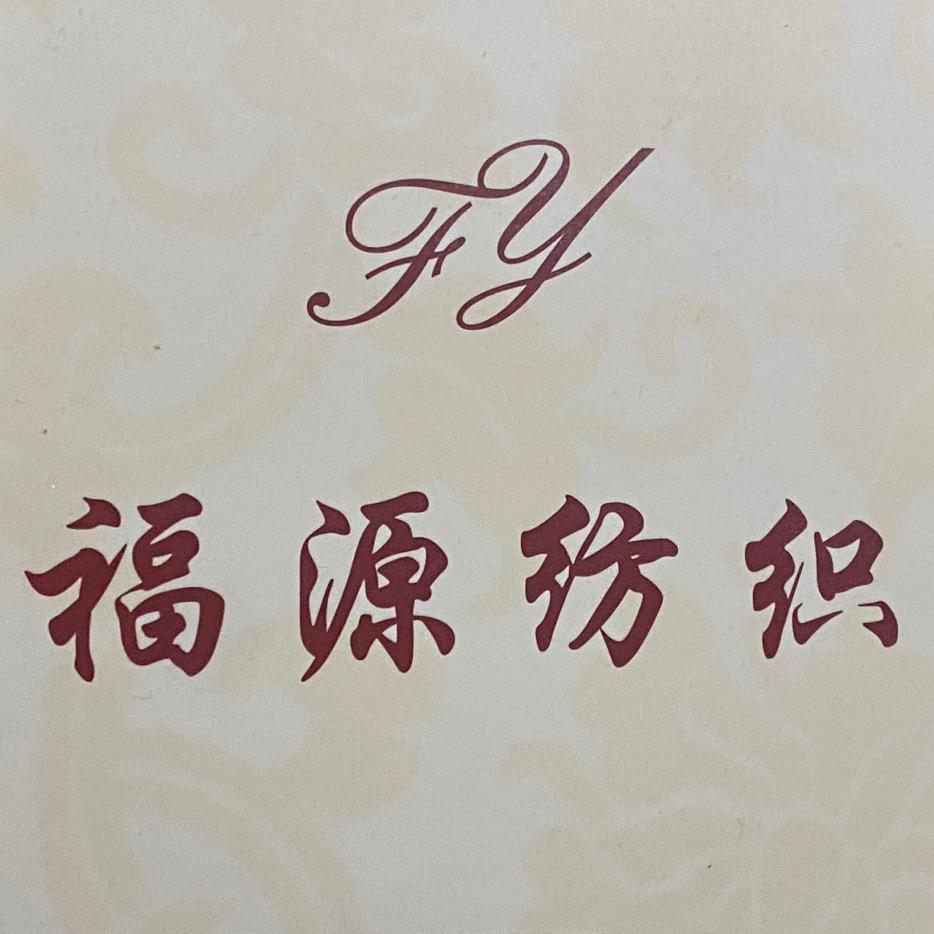 FY
福源纺织